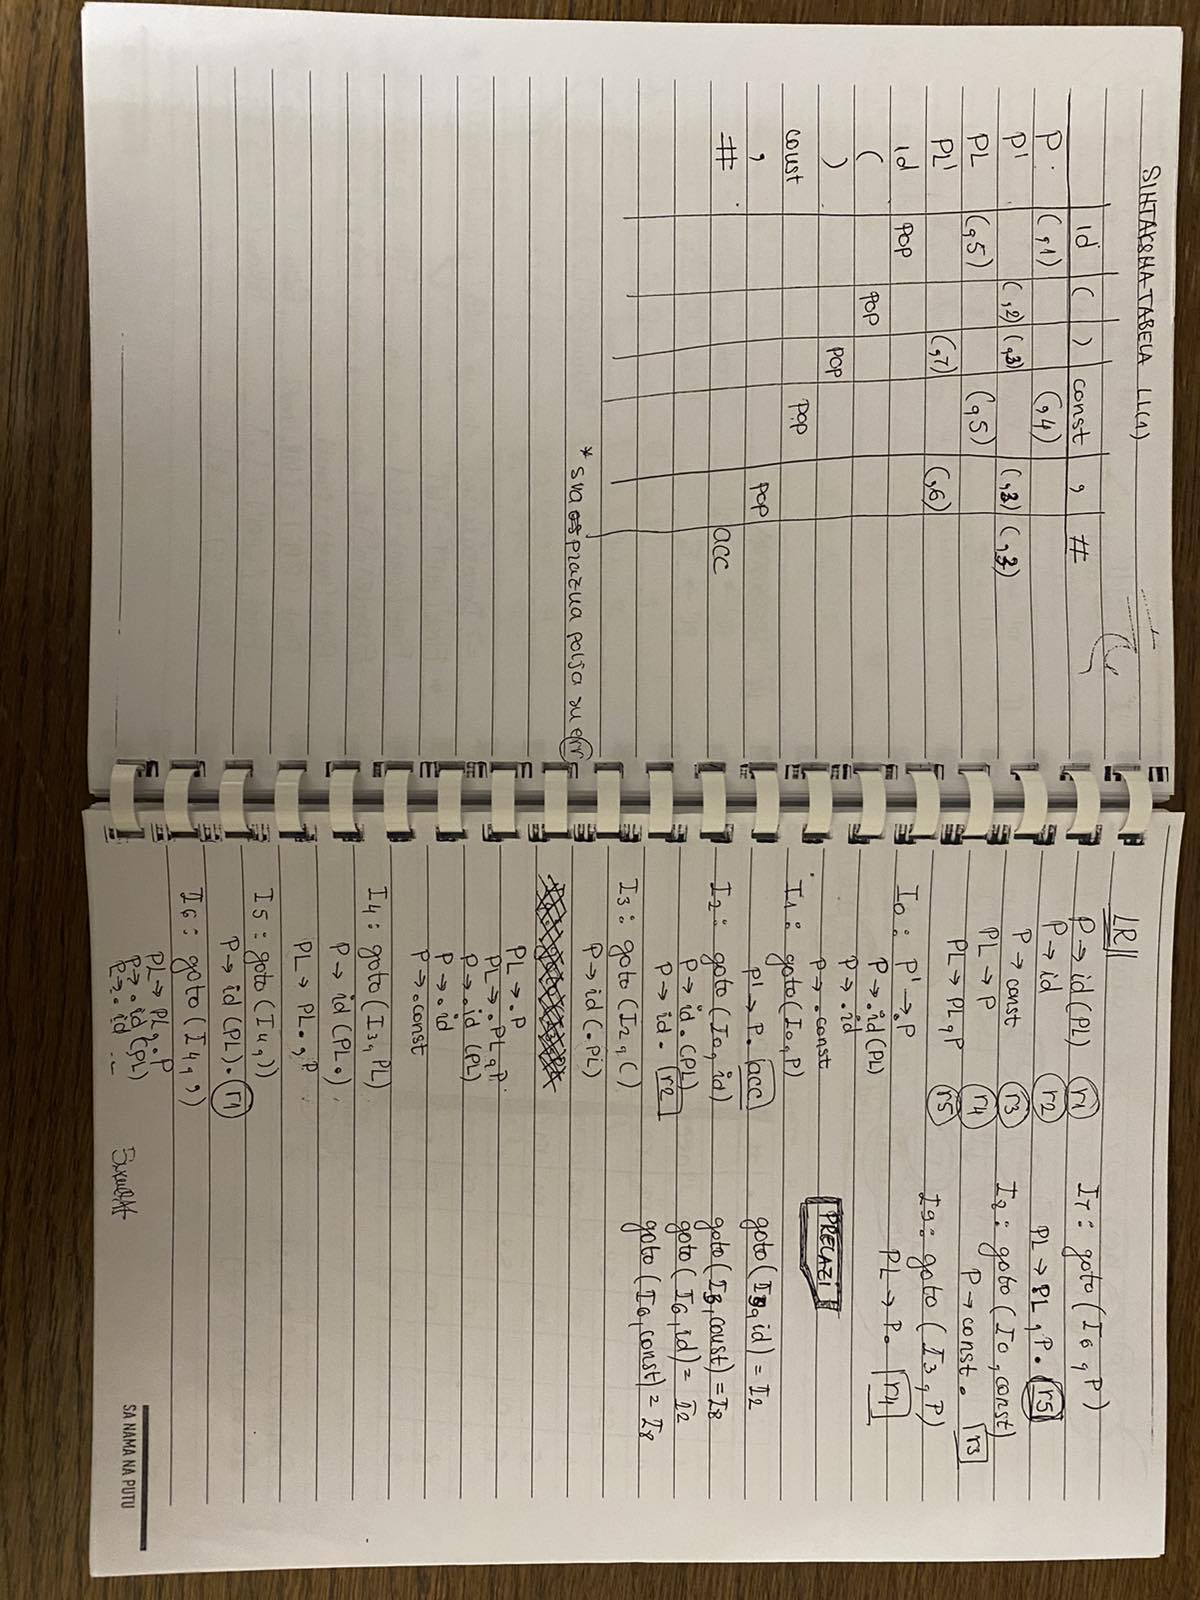 SINTAKSNA TABELA LL(1)
id ( ) const , #
P (,1) (,4)
P' (,2) (,3) (,3) (,3)
PL (,5) (,5)
PL' (,7) (,6)
id pop
( pop
) pop
const pop
, pop
# acc
* sva prazna polja su err
LR
P → id (PL) r1
P → id r2
P → const r3
PL → P r4
PL → PL, P r5
I0: P' → .P
P → .id (PL)
P → .id
P → .const
I1: goto (I0, P)
P' → P. acc
I2: goto (I0, id)
P → id. (PL)
P → id. r2
I3: goto (I2, ()
P → id (.PL)
PL → .P
PL → .PL, P
P → .id (PL)
P → .id
P → .const
I4: goto (I3, PL)
P → id (PL.)
PL → PL., P
I5: goto (I4, ))
P → id (PL). r1
I6: goto (I4, ,)
PL → PL, .P
P → .id (PL)
P → .id ...
I7: goto (I6, P)
PL → PL, P. r5
I8: goto (I0, const)
P → const. r3
I9: goto (I3, P)
PL → P. r4
PRELAZI
goto (I3, id) = I2
goto (I3, const) = I8
goto (I6, id) = I2
goto (I6, const) = I8
SA NAMA NA PUTU